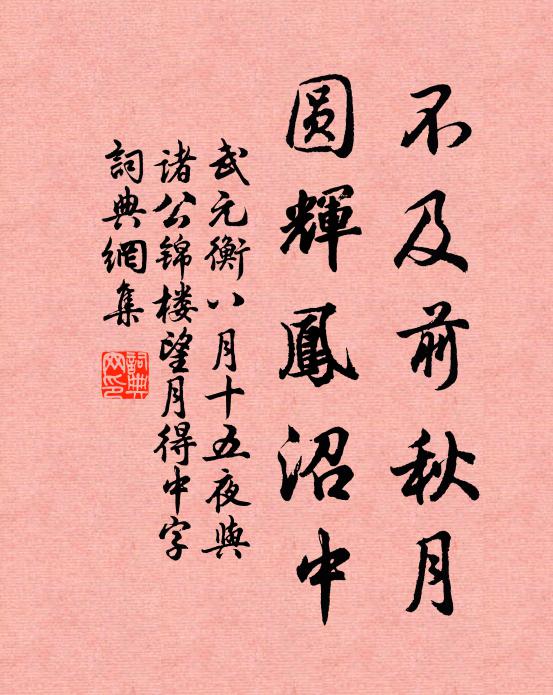 不及前秋月
圆輝鳳沼中
武元衡八月十五夜與
诸公锦楼望月得中字
詞典網集
詞典網印